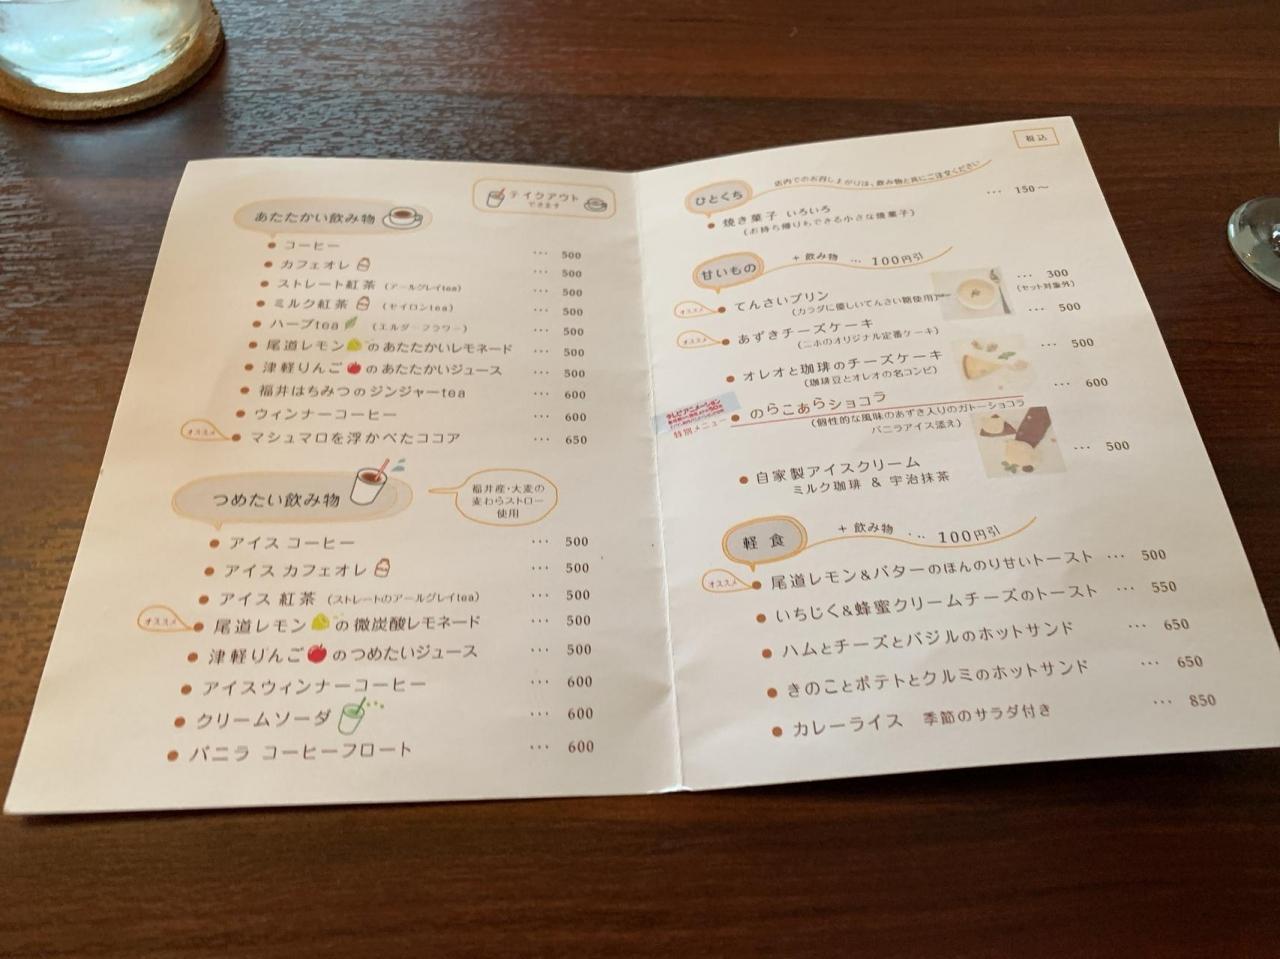 テイクアウト
できます
あたたかい飲み物
コーヒー … 500
カフェオレ … 500
ストレート紅茶 (アールグレイtea) … 500
ミルク紅茶 (セイロンtea) … 500
ハーブtea (エルダーフラワー) … 500
尾道レモンのあたたかいレモネード … 500
津軽りんごのあたたかいジュース … 500
福井はちみつのジンジャーtea … 600
ウィンナーコーヒー … 600
オススメ マシュマロを浮かべたココア … 650
つめたい飲み物
福井産・大麦の
麦わらストロー
使用
アイス コーヒー … 500
アイス カフェオレ … 500
アイス 紅茶 (ストレートのアールグレイtea) … 500
オススメ 尾道レモンの微炭酸レモネード … 500
津軽りんごのつめたいジュース … 500
アイスウィンナーコーヒー … 600
クリームソーダ … 600
バニラ コーヒーフロート … 600
税込
ひとくち 店内でのお召し上がりは、飲み物と共にご注文ください
焼き菓子 いろいろ … 150～
(お持ち帰りもできる小さな焼菓子)
甘いもの + 飲み物 … 100円引
オススメ てんさいプリン … 300
(カラダに優しいてんさい糖使用) (セット対象外)
オススメ あずきチーズケーキ … 500
(ニホのオリジナル定番ケーキ)
オレオと珈琲のチーズケーキ … 500
(珈琲豆とオレオの名コンビ)
テレビアニメーション
特別メニュー のらこあらショコラ … 600
(個性的な風味のあずき入りのガトーショコラ
バニラアイス添え)
自家製アイスクリーム … 500
ミルク珈琲 & 宇治抹茶
軽食 + 飲み物 … 100円引
オススメ 尾道レモン&バターのほんのり甘いトースト … 500
いちじく&蜂蜜クリームチーズのトースト … 550
ハムとチーズとバジルのホットサンド … 650
きのことポテトとクルミのホットサンド … 650
カレーライス 季節のサラダ付き … 850